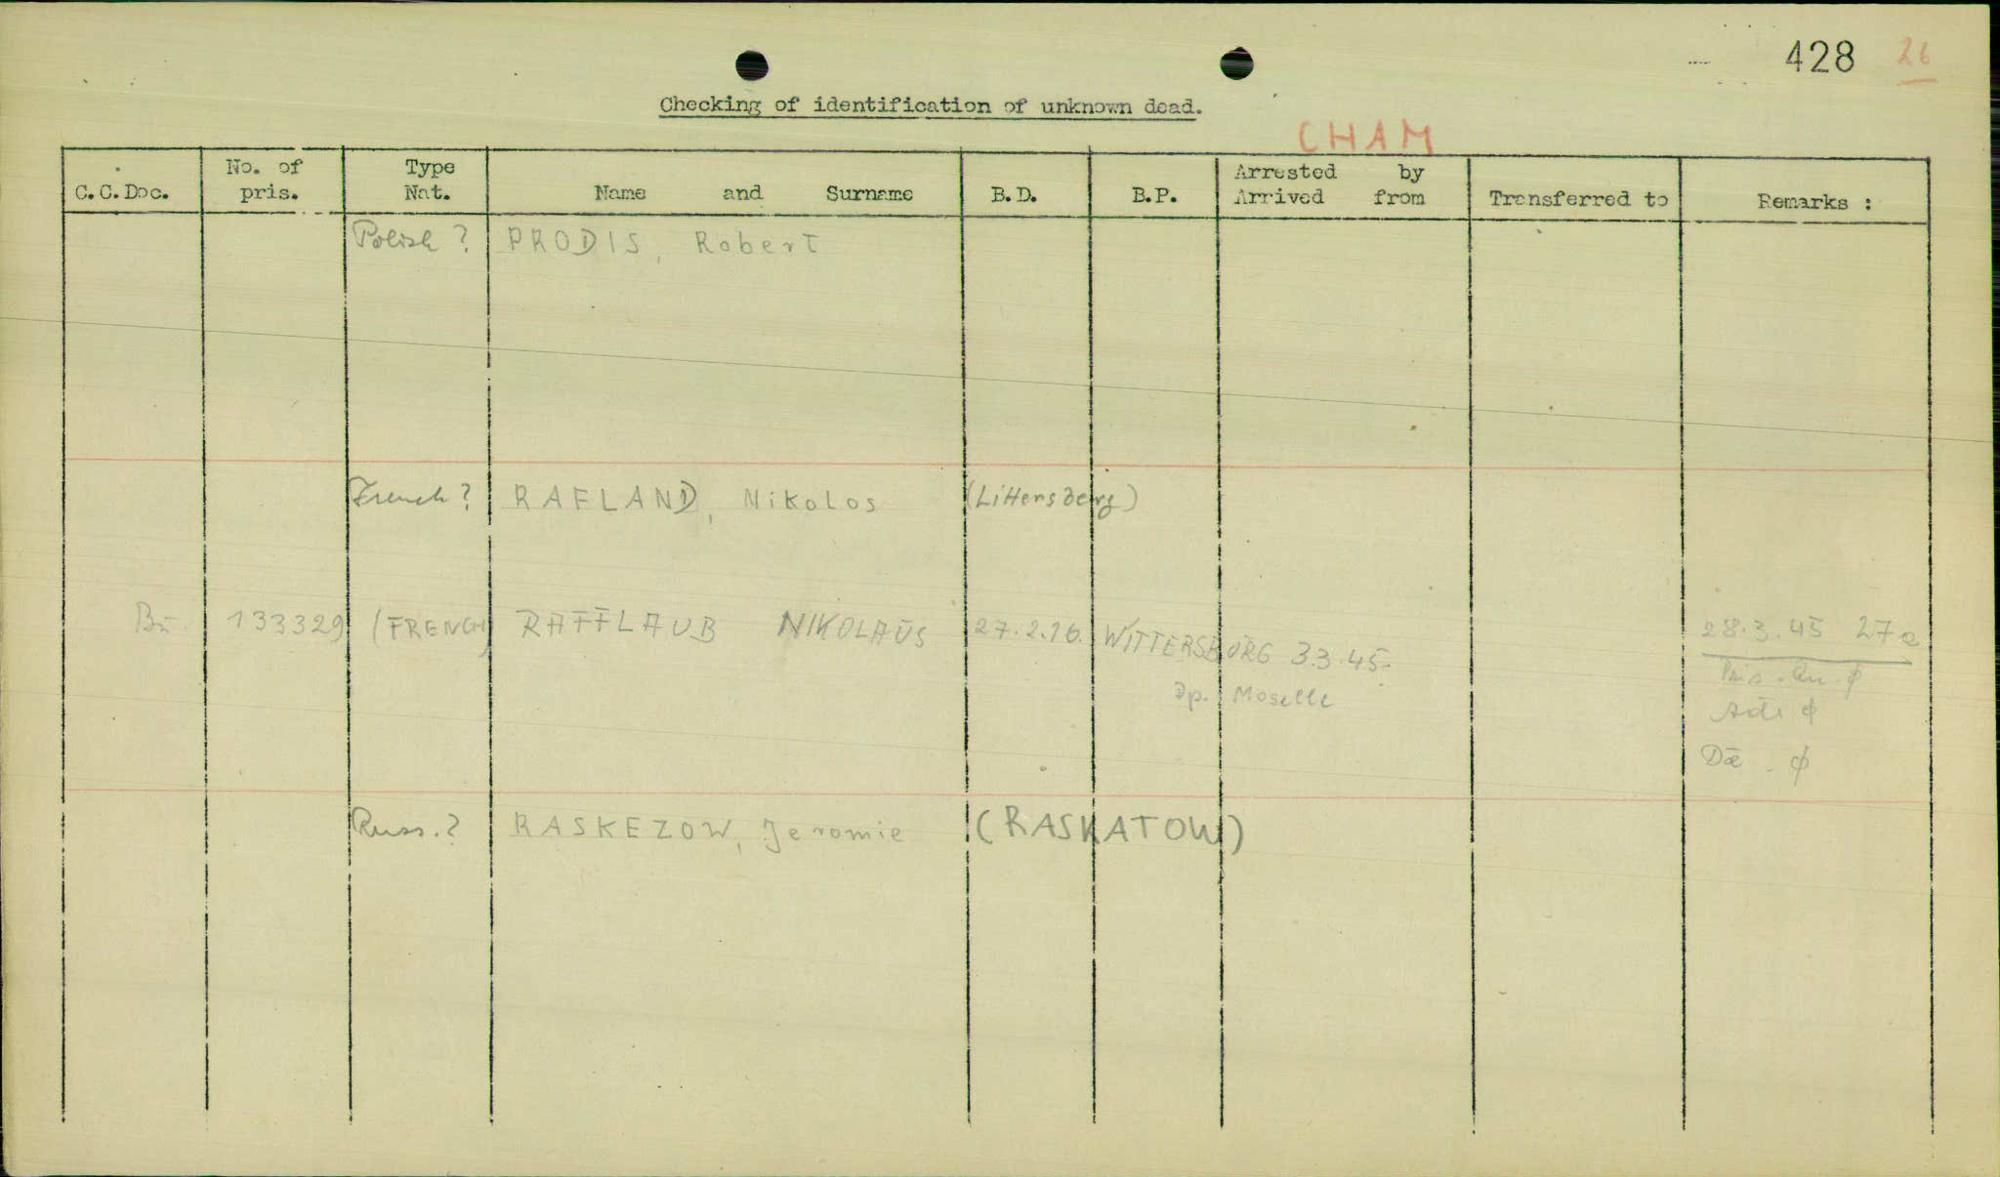 428 26
Checking of identification of unknown dead.
CHAM
C.C.Doc. No. of pris. Type Nat. Name and Surname B.D. B.P. Arrested by Arrived from Transferred to Remarks :
Polish ? PRODIS, Robert
French ? RAFLAND, Nikolos (Littersberg)
Bu 133329 (FRENCH) RAFFLAUB NIKOLAUS 27.2.16. WITTERSBURG 3.3.45. 28.3.45 27a
Dp. Moselle
Russ. ? RASKEZOW, Jeromie (RASKATOW)